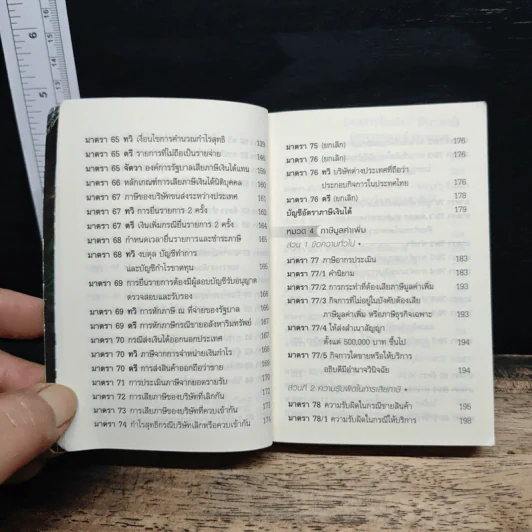 มาตรา 65 ทวิ เงื่อนไขการคำนวณกำไรสุทธิ 139
มาตรา 65 ตรี รายการที่ไม่ถือเป็นรายจ่าย 146
มาตรา 65 จัตวา องค์การรัฐบาลเสียภาษีเงินได้แทน
มาตรา 66 หลักเกณฑ์การเสียภาษีเงินได้นิติบุคคล
มาตรา 67 ภาษีของบริษัทขนส่งระหว่างประเทศ
มาตรา 67 ทวิ การยื่นรายการ 2 ครั้ง
มาตรา 67 ตรี เงินเพิ่มกรณียื่นรายการ 2 ครั้ง 164
มาตรา 68 กำหนดเวลายื่นรายการและชำระภาษี
มาตรา 68 ทวิ งบดุล บัญชีทำการ
และบัญชีกำไรขาดทุน 165
มาตรา 69 การยื่นรายการต้องมีผู้สอบบัญชีรับอนุญาต
ตรวจสอบและรับรอง 165
มาตรา 69 ทวิ การหักภาษี ณ ที่จ่ายของรัฐบาล
มาตรา 69 ตรี การหักภาษีกรณีขายอสังหาริมทรัพย์
มาตรา 70 กรณีส่งเงินได้ออกนอกประเทศ
มาตรา 70 ทวิ ภาษีจากการจำหน่ายเงินกำไร
มาตรา 70 ตรี การส่งสินค้าออกถือว่าขาย
มาตรา 71 การประเมินภาษีจากยอดรายรับ
มาตรา 72 การเสียภาษีของบริษัทที่เลิกกัน
มาตรา 73 การเสียภาษีของบริษัทที่ควบเข้ากัน
มาตรา 74 กำไรสุทธิกรณีบริษัทเลิกหรือควบเข้ากัน 174
มาตรา 75 (ยกเลิก) 176
มาตรา 76 (ยกเลิก) 176
มาตรา 76 ทวิ บริษัทต่างประเทศที่ถือว่า
ประกอบกิจการในประเทศไทย 176
มาตรา 76 ตรี (ยกเลิก) 178
บัญชีอัตราภาษีเงินได้ 179
หมวด 4 ภาษีมูลค่าเพิ่ม
ส่วน 1 ข้อความทั่วไป •
มาตรา 77 ภาษีอากรประเมิน 183
มาตรา 77/1 คำนิยาม 183
มาตรา 77/2 การกระทำที่ต้องเสียภาษีมูลค่าเพิ่ม 193
มาตรา 77/3 กิจการที่ไม่อยู่ในบังคับต้องเสีย
ภาษีมูลค่าเพิ่ม หรือภาษีธุรกิจเฉพาะ 193
มาตรา 77/4 ให้ส่งสำเนาสัญญา
ตั้งแต่ 500,000 บาท ขึ้นไป 194
มาตรา 77/5 กิจการใดขายหรือให้บริการ
อธิบดีมีอำนาจวินิจฉัย 194
ส่วนที่ 2 ความรับผิดในการเสียภาษี •
มาตรา 78 ความรับผิดในกรณีขายสินค้า 195
มาตรา 78/1 ความรับผิดในกรณีให้บริการ 199
5
6
15
16